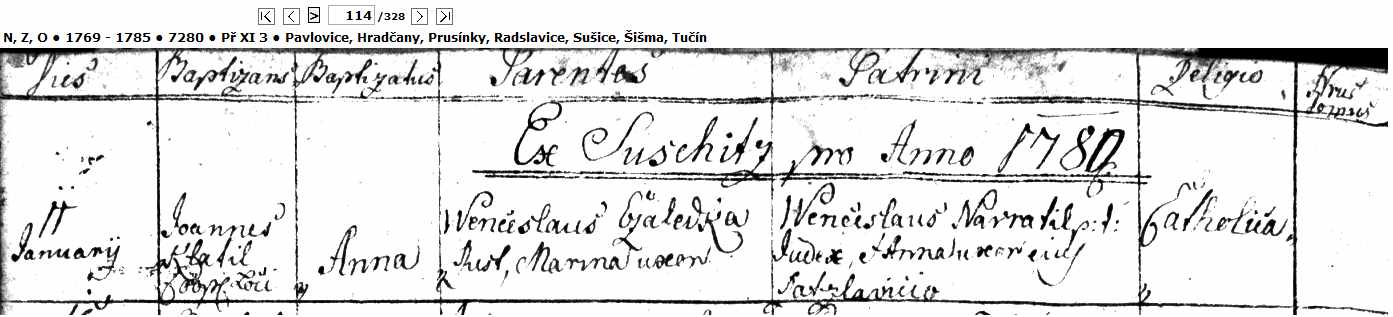 114 /328
N, Z, O ● 1769 - 1785 ● 7280 ● Př XI 3 ● Pavlovice, Hradčany, Prusínky, Radslavice, Sušice, Šišma, Tučín
Dies Baptizans Baptizatus Parentes Patrini Religio
Ex Suschitz pro Anno 1780
11
January
Joannes
Zlatil
Anna
Wenceslaus
Rust, Marina uxor
Wenceslaus Navratil p:t:
Judex, Anna uxor eius
Catholica